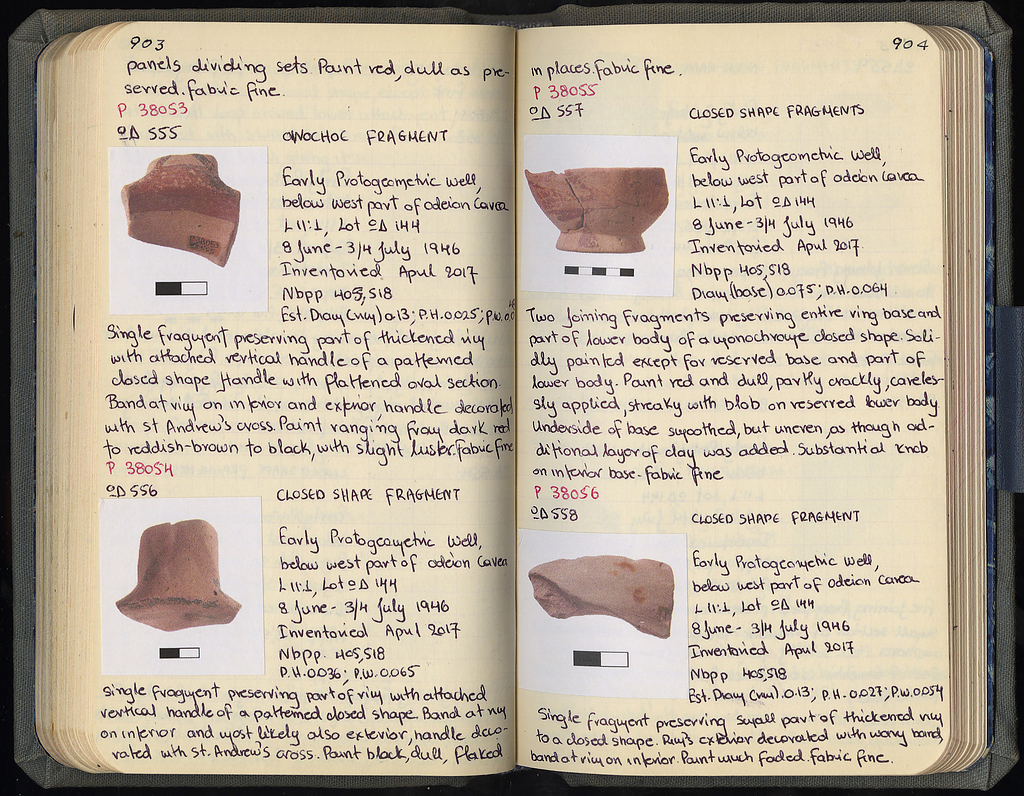 903
panels dividing sets. Paint red, dull as pre-
served. Fabric fine.
P 38053
ΩΔ 555
OINOCHOE FRAGMENT
Early Protogeometric Well,
below west part of odeion Cavea
L 11:1, Lot ΩΔ 144
8 June - 3/4 July 1946
Inventoried April 2017
Nbpp 405,518
Est. Diam (rim) 0.13; P.H. 0.025; P.W. 0.0
Single fragment preserving part of thickened rim
with attached vertical handle of a patterned
closed shape. Handle with flattened oval section.
Band at rim on interior and exterior, handle decorated
with st Andrew's cross. Paint ranging from dark red
to reddish-brown to black, with slight luster. Fabric fine
P 38054
ΩΔ 556
CLOSED SHAPE FRAGMENT
Early Protogeometric Well,
below west part of odeion Cavea
L 11:1, Lot ΩΔ 144
8 June - 3/4 July 1946
Inventoried April 2017
Nbpp. 405,518
P.H. 0.036; P.W. 0.065
Single fragment preserving part of rim with attached
vertical handle of a patterned closed shape. Band at rim
on interior and most likely also exterior, handle deco-
rated with st. Andrew's cross. Paint black, dull, flaked
904
in places. Fabric fine.
P 38055
ΩΔ 557
CLOSED SHAPE FRAGMENTS
Early Protogeometric Well,
below west part of odeion Cavea
L 11:1, Lot ΩΔ 144
8 June - 3/4 July 1946
Inventoried April 2017
Nbpp 405,518
Diam (base) 0.075; P.H. 0.064
Two joining fragments preserving entire ring base and
part of lower body of a monochrome closed shape. Soli-
dly painted except for reserved base and part of
lower body. Paint red and dull, partly crackly, careles-
sly applied, streaky with blob on reserved lower body.
Underside of base smoothed, but uneven, as though ad-
ditional layer of clay was added. Substantial knob
on interior base. Fabric fine
P 38056
ΩΔ 558
CLOSED SHAPE FRAGMENT
Early Protogeometric Well,
below west part of odeion Cavea
L 11:1, Lot ΩΔ 144
8 June - 3/4 July 1946
Inventoried April 2017
Nbpp 405,518
Est. Diam (rim) 0.13; P.H. 0.027; P.W. 0.054
Single fragment preserving small part of thickened rim
to a closed shape. Rim's exterior decorated with wavy band,
band at rim on interior. Paint much faded. Fabric fine.